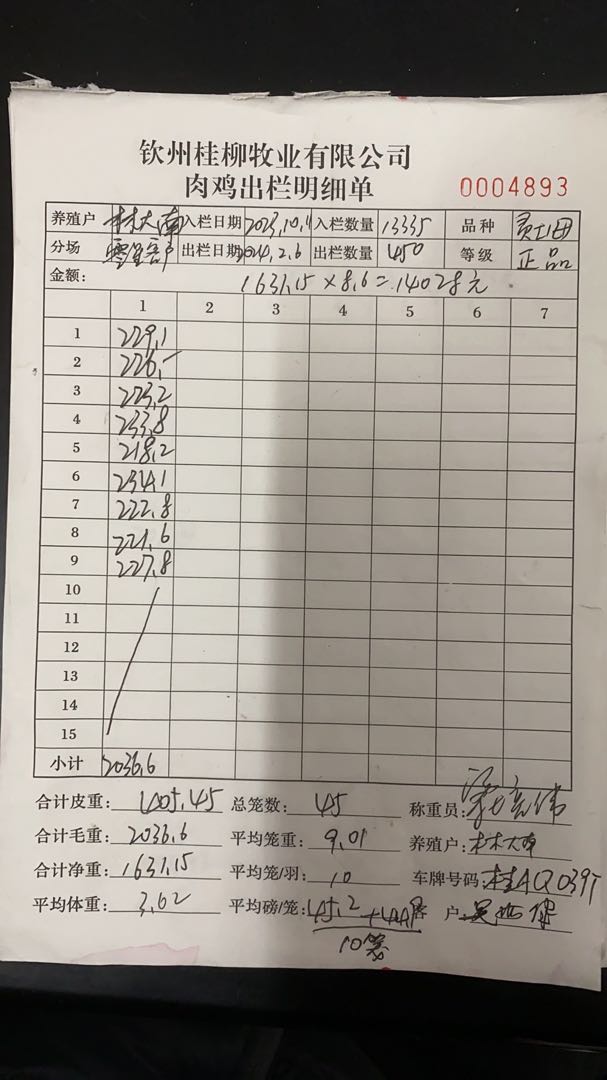 钦州桂柳牧业有限公司
肉鸡出栏明细单 0004893
养殖户 林大南 入栏日期 2023,10,1 入栏数量 13335 品种
分场 零星客户 出栏日期 2024,2,6 出栏数量 450 等级 正品
金额: 1631.15×8.6=14028元
1 2 3 4 5 6 7
1 229.1
2 226.-
3 223.2
4 233.8
5 218.2
6 234.1
7 222.8
8 221.6
9 227.8
10
11
12
13
14
15
小计 2036.6
合计皮重: 405.45 总笼数: 45 称重员:
合计毛重: 2036.6 平均笼重: 9.01 养殖户: 林大南
合计净重: 1631.15 平均笼/羽: 10 车牌号码: 桂AQ039T
平均体重: 3.62 平均磅/笼: 45.2 客户:
10笼